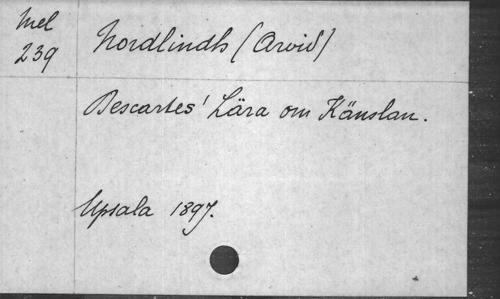 Mel
239
Nordlindh (Arvid)
Descartes' Lära om Känslan.
Upsala 1897.